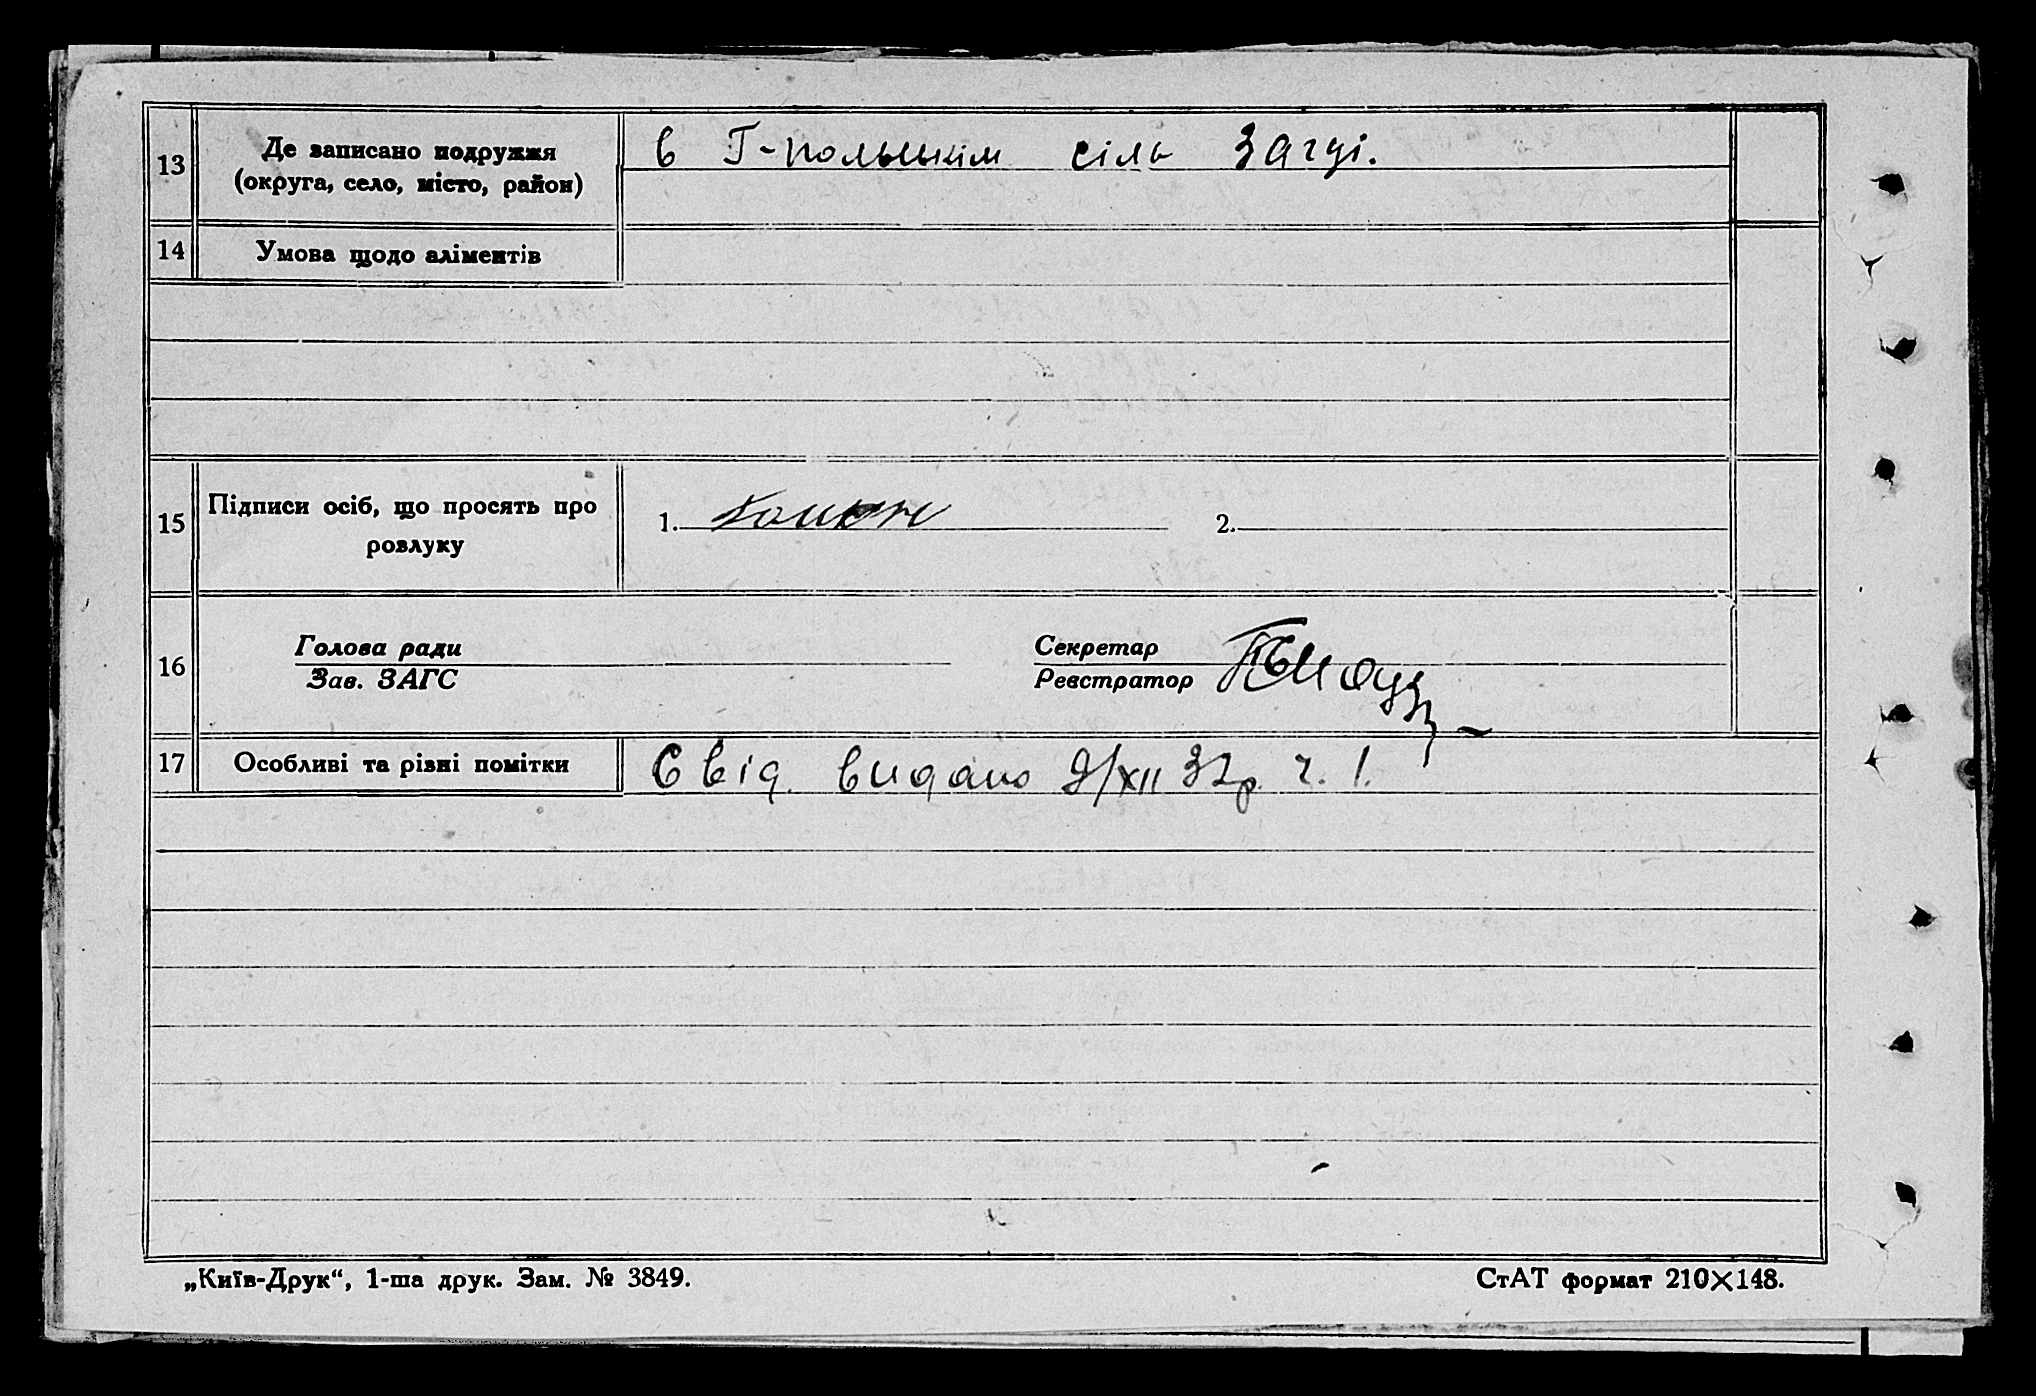 13 Де записано подружжя
(округа, село, місто, район)
в Г-польскім сіль Загсі.
14 Умова щодо аліментів
15 Підписи осіб, що просять про
розлуку
1.
2.
16 Голова ради
Зав. ЗАГС
Секретар
Реєстратор
17 Особливі та різні помітки
Свід. видано 9/XII 32р. ч. 1.
„Київ-Друк“, 1-ша друк. Зам. № 3849.
СтАТ формат 210×148.